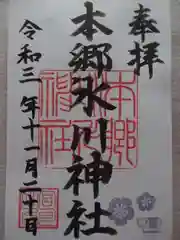 奉拝
本郷氷川神社
令和三年十一月二十日